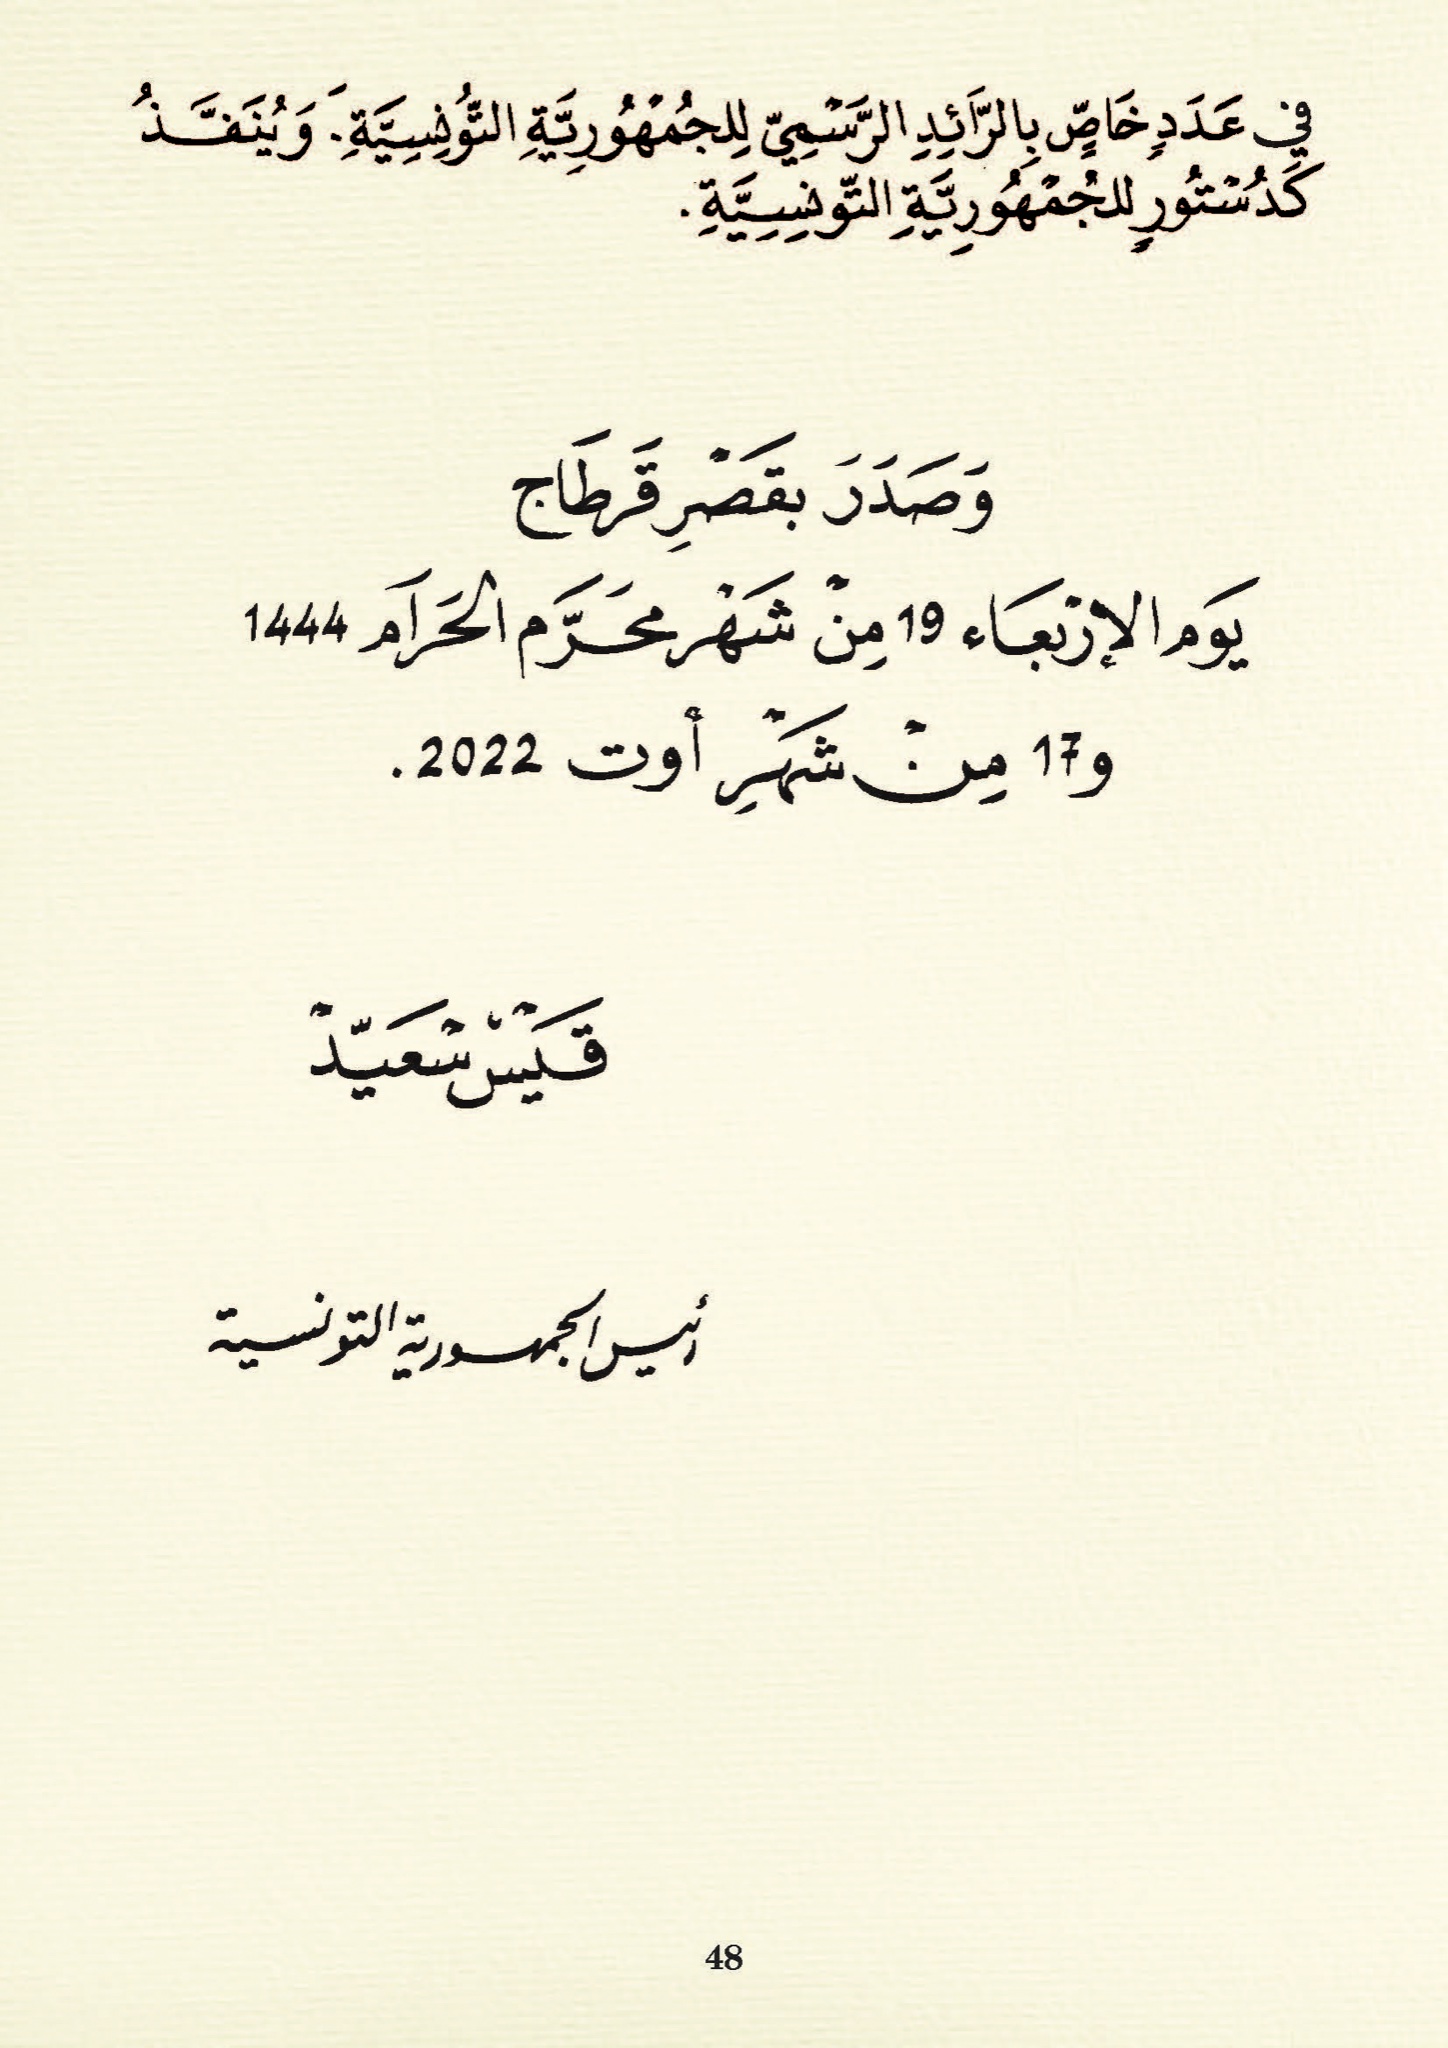 في عَدَدٍ خَاصٍّ بِالرَّائِدِ الرَّسْمِيّ لِلجُمْهُورِيَّةِ التُّونِسِيَّةِ. وَيُنَفَّذُ
كَدُسْتُورٍ للجُمْهُورِيَّةِ التّونسِيَّةِ.
وَصَدَرَ بقَصْرِ قَرطَاج
يَوَم الإرْبعَاء 19 مِنْ شَهْر محَرَّم الحَرَام 1444
و17 مِنْ شَهْرِ أوت 2022.
قَيْسْ سْعَيّدْ
رئيس الجمهورية التونسية
48